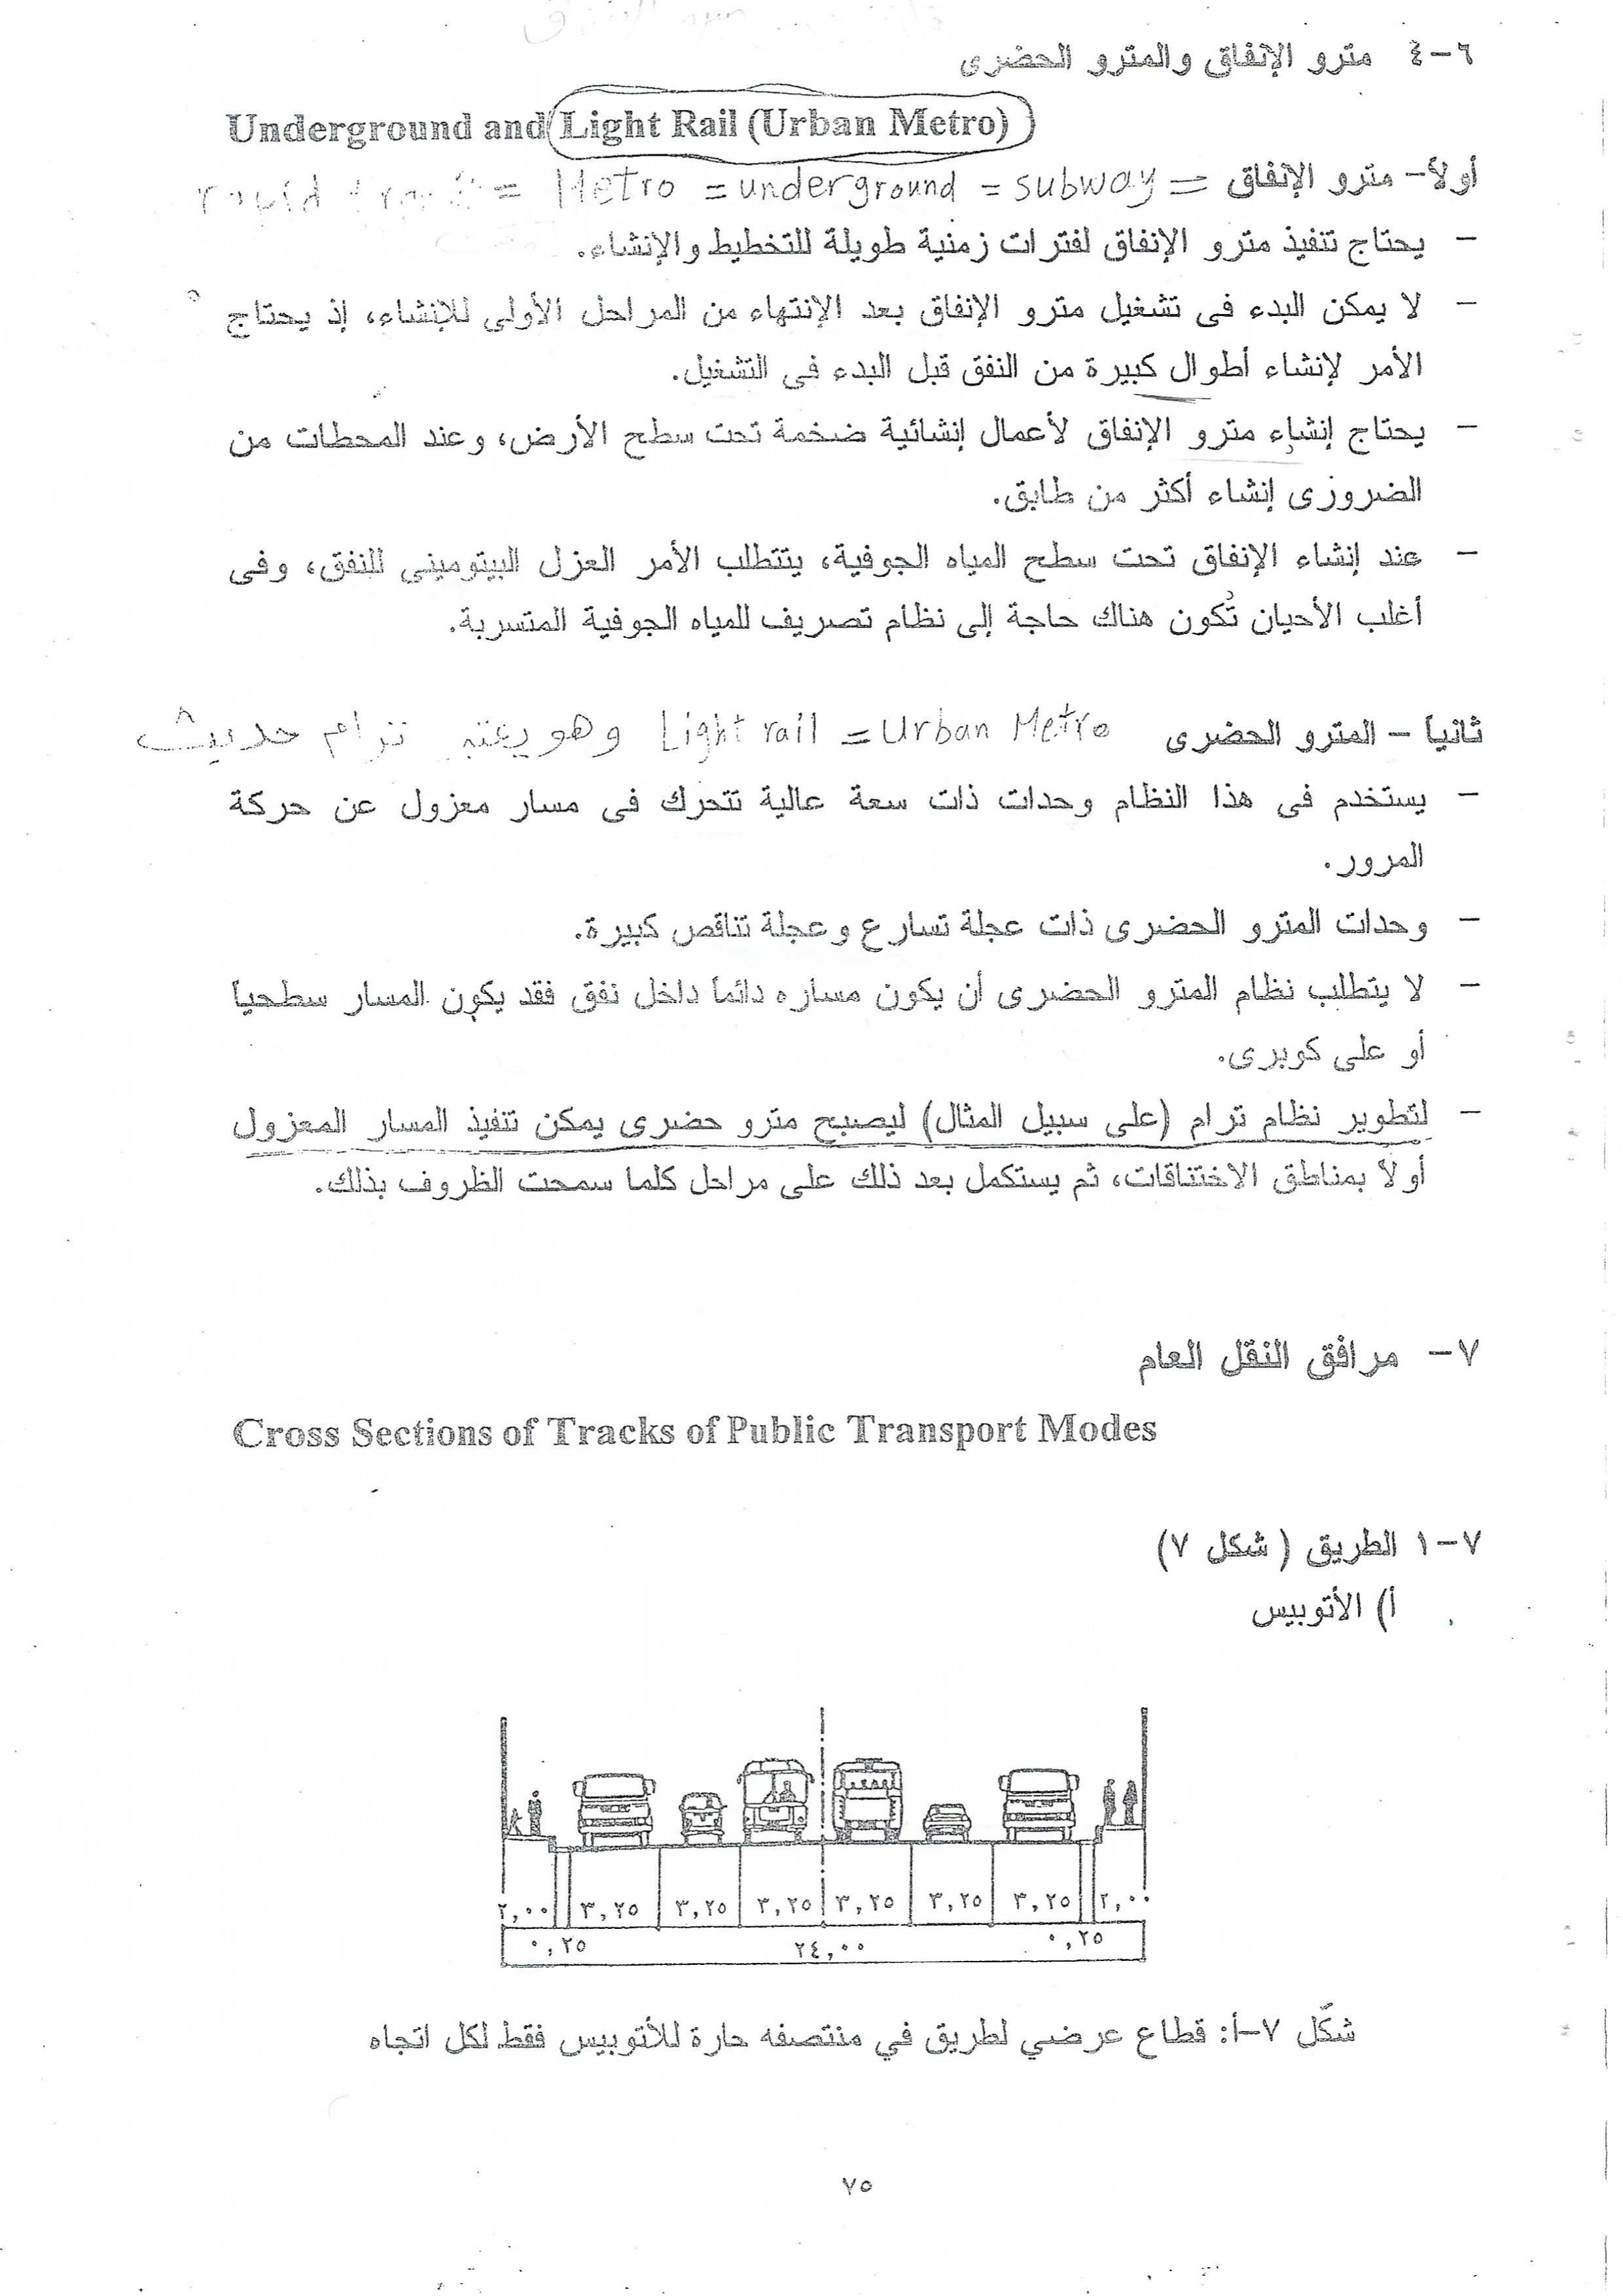 ٦-٤ مترو الإنفاق والمترو الحضرى
Underground and Light Rail (Urban Metro)
أولاً- مترو الإنفاق = subway = underground = Metro =
- يحتاج تنفيذ مترو الإنفاق لفترات زمنية طويلة للتخطيط والإنشاء.
- لا يمكن البدء فى تشغيل مترو الإنفاق بعد الإنتهاء من المراحل الأولى للإنشاء، إذ يحتاج
الأمر لإنشاء أطوال كبيرة من النفق قبل البدء فى التشغيل.
- يحتاج إنشاء مترو الإنفاق لأعمال إنشائية ضخمة تحت سطح الأرض، وعند المحطات من
الضرورى إنشاء أكثر من طابق.
- عند إنشاء الإنفاق تحت سطح المياه الجوفية، يتتطلب الأمر العزل البيتومينى للنفق، وفى
أغلب الأحيان تكون هناك حاجة إلى نظام تصريف للمياه الجوفية المتسربة.
ثانياً - المترو الحضرى Light rail = Urban Metro وهو يعتبر ترام حديث
- يستخدم فى هذا النظام وحدات ذات سعة عالية تتحرك فى مسار معزول عن حركة
المرور.
- وحدات المترو الحضرى ذات عجلة تسارع وعجلة تناقص كبيرة.
- لا يتطلب نظام المترو الحضرى أن يكون مساره دائماً داخل نفق فقد يكون المسار سطحياً
أو على كوبرى.
- لتطوير نظام ترام (على سبيل المثال) ليصبح مترو حضرى يمكن تنفيذ المسار المعزول
أولاً بمناطق الاختناقات، ثم يستكمل بعد ذلك على مراحل كلما سمحت الظروف بذلك.
٧- مرافق النقل العام
Cross Sections of Tracks of Public Transport Modes
٧-١ الطريق (شكل ٧)
أ) الأتوبيس
٢,٠٠ ٣,٢٥ ٣,٢٥ ٣,٢٥ ٣,٢٥ ٣,٢٥ ٣,٢٥ ٢,٠٠
٠,٢٥ ٢٤,٠٠ ٠,٢٥
شكل ٧-أ: قطاع عرضي لطريق في منتصفه حارة للأتوبيس فقط لكل اتجاه
٧٥